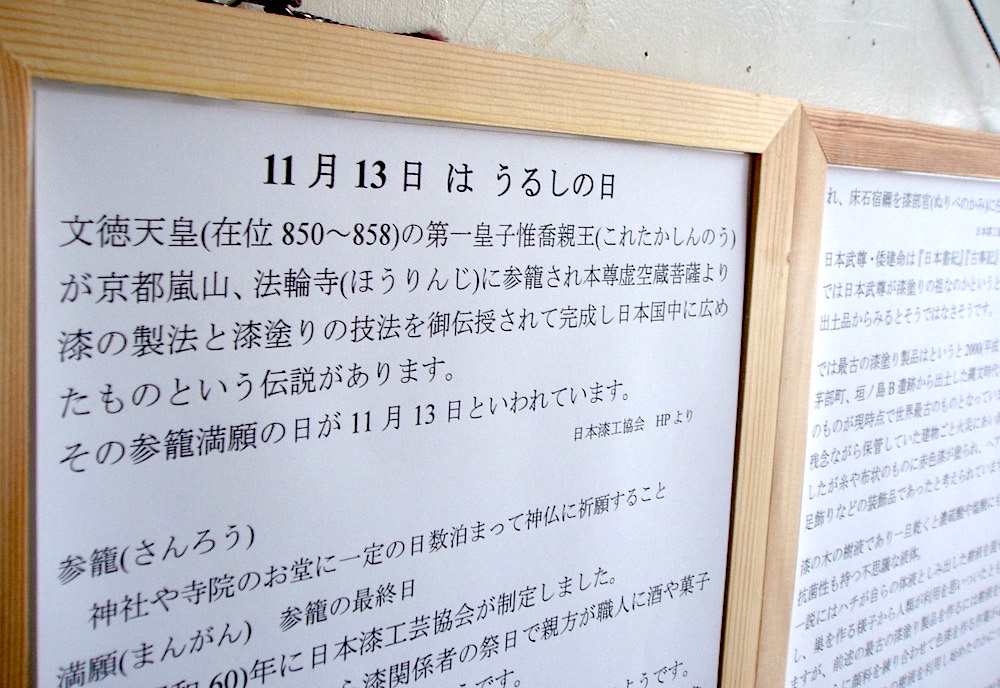 11月13日 は うるしの日
文徳天皇(在位 850〜858)の第一皇子惟喬親王(これたかしんのう)
が京都嵐山、法輪寺(ほうりんじ)に参籠され本尊虚空蔵菩薩より
漆の製法と漆塗りの技法を御伝授されて完成し日本国中に広め
たものという伝説があります。
その参籠満願の日が 11 月 13 日といわれています。
日本漆工協会 HPより
参籠(さんろう)
神社や寺院のお堂に一定の日数泊まって神仏に祈願すること
満願(まんがん) 参籠の最終日
60)年に日本漆工芸協会が制定しました。
漆関係者の祭日で親方が職人に酒や菓子
です。
ようです。
れ、床石宿禰を漆部官(ぬりべのかみ)に
日本漆工
日本武尊・倭建命は『日本書紀』『古事記』
では日本武尊が漆塗りの祖なのかというと
出土品からみるとそうではなさそうです。
では最古の漆塗り製品はというと 2000(平成
茅部町、垣ノ島 B 遺跡から出土した縄文時代
のものが現時点で世界最古のものとなってい
残念ながら保管していた建物ごと火災にあい
したが糸や布状のものに赤色漆が塗られ、
足飾りなどの装飾品であったと考えられていま
漆の木の樹液であり一旦乾くと濃硫酸や塩酸に
抗菌性も持つ不思議な液体。
一説にはハチが自らの体液としみ出した樹液を
し、巣を作る様子から人類が利用を思いついたとも
ますが、前述の最古の漆塗り製品を作るには
に顔料を練り合わせて色漆を作る作業の